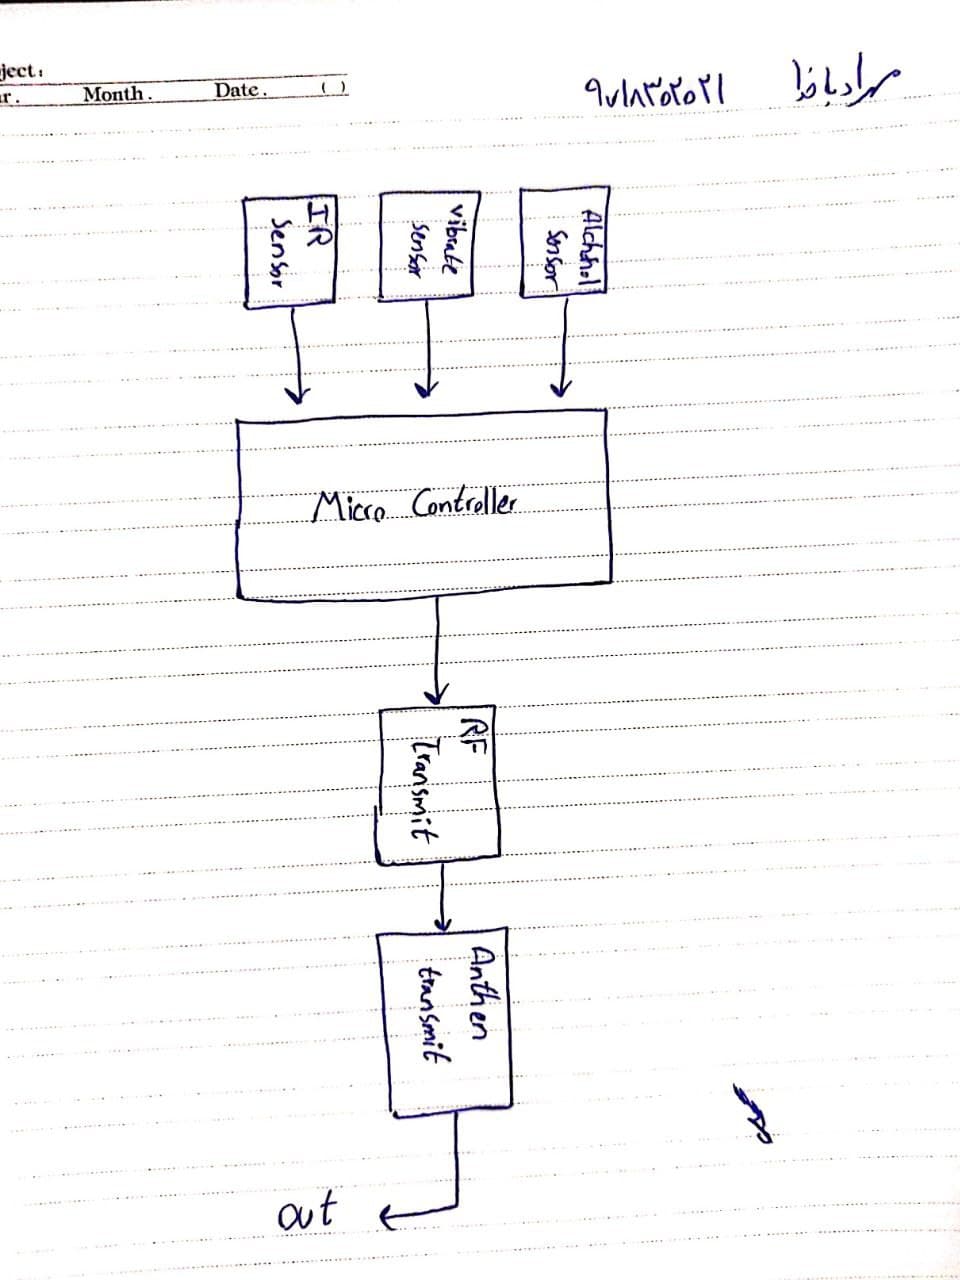 ject:
r. Month. Date. ( )
۹۷۸۳۰۲۰۲۱
IR
Sensor
vibrate
sensor
Alchohol
sonsor
Micro Controller
RF
Transmit
Anthen
transmit
out